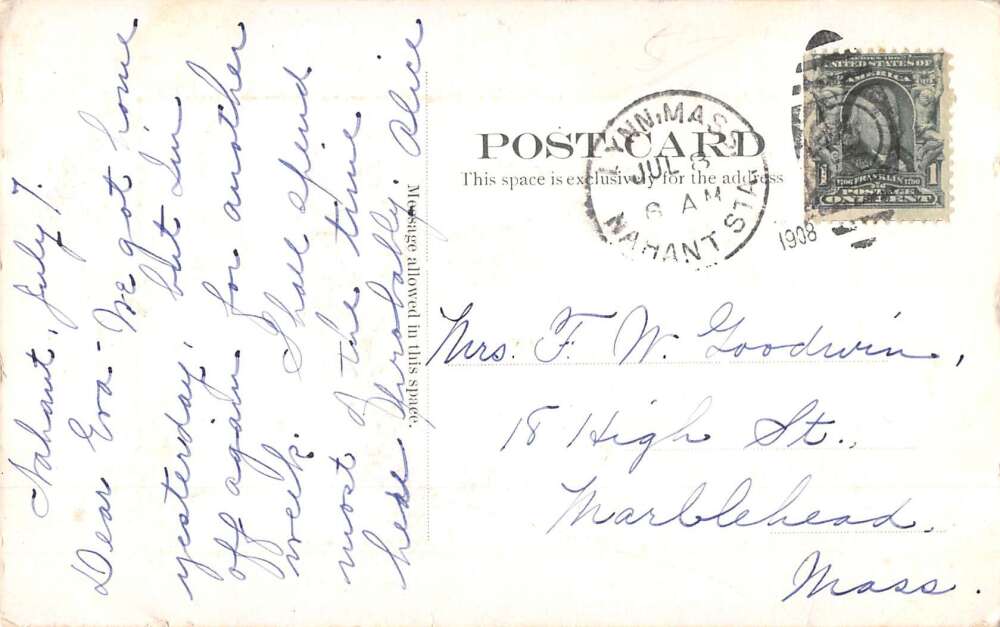 Nahant, July 7.
Dear Eva - We got home
yesterday, but Jim
off again for another
week. I shall spend
most of the time
here probably. Alice
Message allowed in this space.
POST CARD
This space is exclusively for the address
LYNN, MASS.
JUL 8
6 AM
NAHANT STA.
1908
SERIES 1902
UNITED STATES OF
AMERICA
1706 FRANKLIN 1790
POSTAGE
1 ONE CENT 1
Mrs. F. W. Goodwin,
18 High St.,
Marblehead,
Mass.